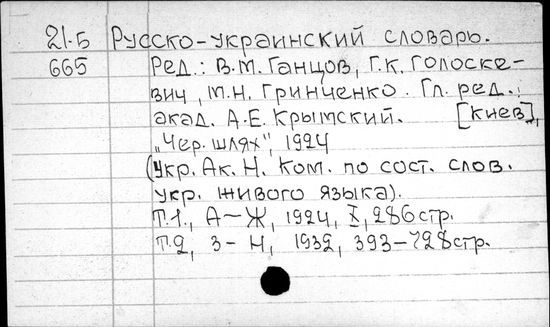 21-5 Русско-украинский словарь.
665 Ред.: В.М. Ганцов, Г.К. Голоске-
вич, М.Н. Гринченко. Гл. ред.:
акад. А.Е. Крымский. [Киев],
„Чер. шлях", 1924
(Укр. Ак. Н. Ком. по сост. слов.
укр. живого языка).
Т.1., А–Ж, 1924, X, 286 стр.
Т.2, З – Н, 1932, 393–728 стр.